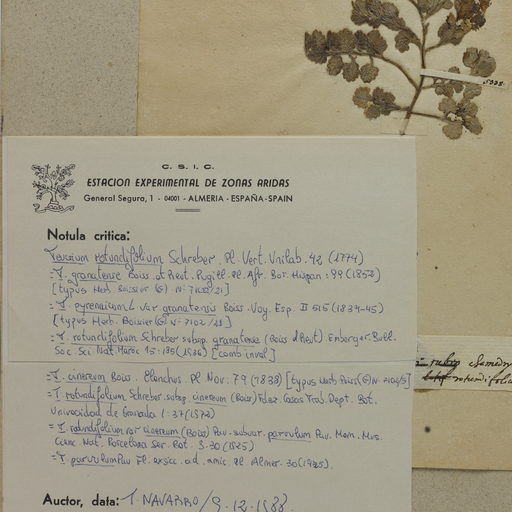 5338.
C. S. I. C.
ESTACION EXPERIMENTAL DE ZONAS ARIDAS
General Segura, 1 - 04001 - ALMERIA - ESPAÑA - SPAIN
Notula critica:
Teucrium rotundifolium Schreber. Pl. Vert. Unilab. 42 (1774)
= T. granatense Boiss. et Reut. Pugill. Pl. Afr. Bor. Hispan: 99 (1852)
[typus Herb. Boissier (G) Nº 7102/21]
= T. pyrenaicum L var granatensis Boiss. Voy. Esp. II 515 (1839-45)
[typus Herb. Boissier (G) Nº 7102/21]
= T. rotundifolium Schreber subsp. granatense (Boiss & Reut) Emberger. Bull.
Soc. Sci. Nat. Maroc 15:195 (1936) [comb inval]
= T. cinereum Boiss. Elenchus Pl. Nov. 79 (1838) [typus Herb. Boiss (G) Nº 7102/5]
= T. rotundifolium Schreber subsp. cinereum (Boiss) Fdez Casas Trab. Dept. Bot.
Univecidad de Granada 1:37 (1972)
= T. rotundifolium var cinereum (Boiss) Pau subvar. parvulum Pau. Mem. Mus.
Cienc. Nat. Barcelona Ser. Bot. 3.30 (1925)
= T. parvulum Pau Fl. exsicc. ad. amic. pl. Almer. 30 (1925).
Auctor, data: T. NAVARRO / 9.12.1988.
rubro chamaedry
rotundifolia